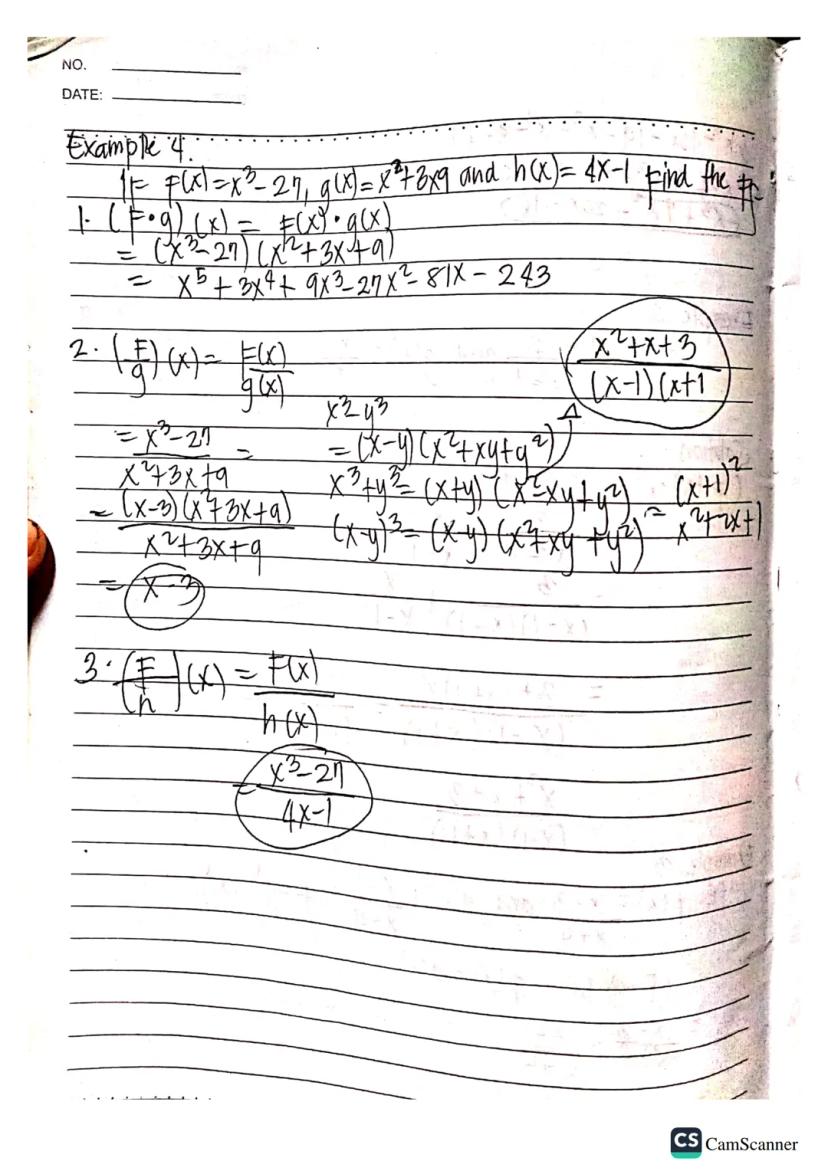 NO.
DATE:
Example 4.
If F(x) = x³-27, g(x) = x²+3x9 and h(x) = 4x-1 Find the
1. (F•g)(x) = F(x)•g(x)
= (x³-27)(x²+3x+9)
= x⁵+3x⁴+9x³-27x²-81x-243
2. (F/g)(x) = F(x)/g(x)
x²+x+3/(x-1)(x+1
= x³-27/x²+3x+9 =
x³-y³
= (x-y)(x²+xy+y²)
x³+y³ = (x+y)(x²-xy+y²)
= (x-3)(x²+3x+9)/x²+3x+9
(x-y)³ = (x-y)(x²+xy+y²) = (x+1)²/x²+2x+1
= x-3
3. (F/h)(x) = F(x)/h(x)
= x³-27/4x-1
CS CamScanner